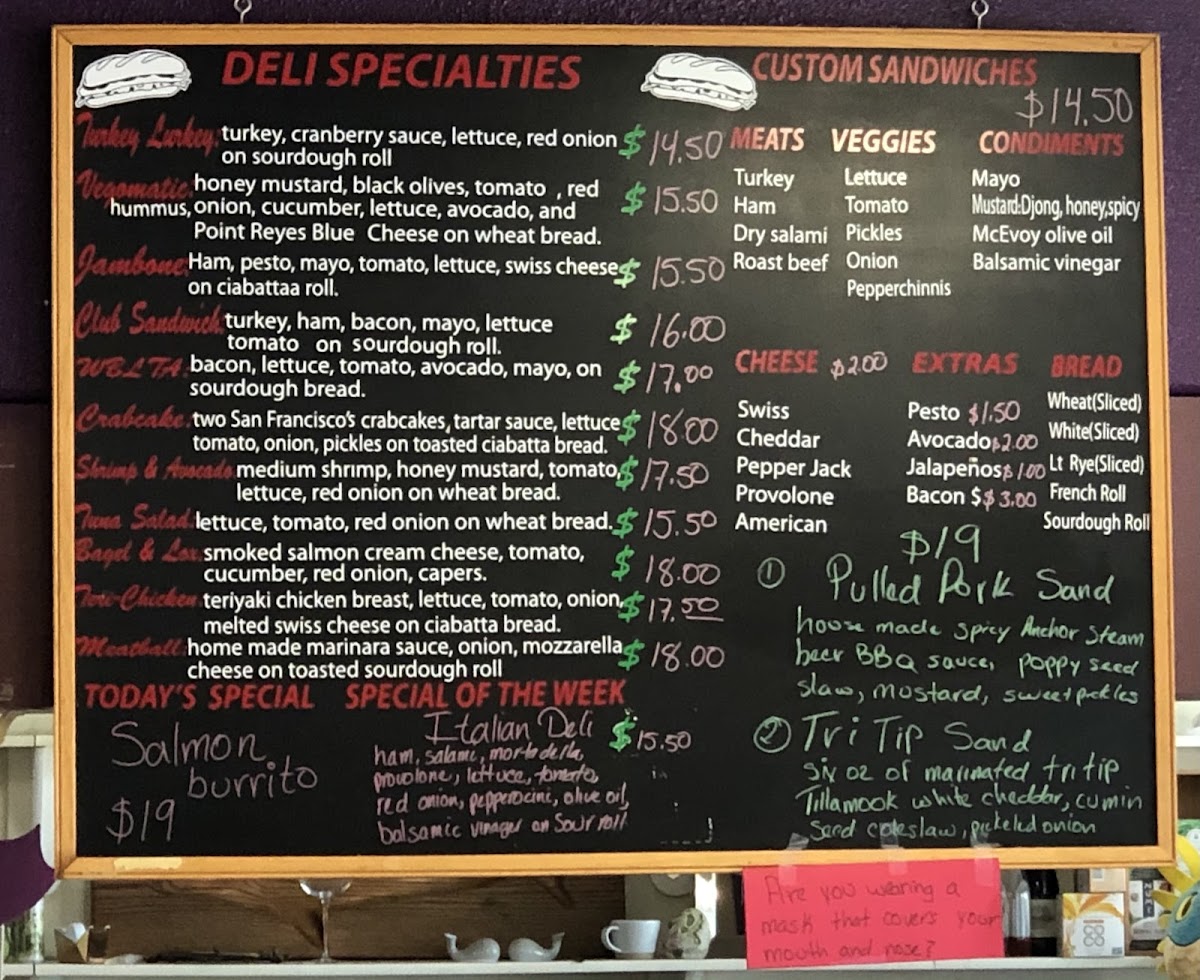 DELI SPECIALTIES
Turkey Lurkey: turkey, cranberry sauce, lettuce, red onion $ 14.50
on sourdough roll
Vegomatic: honey mustard, black olives, tomato , red $ 15.50
hummus, onion, cucumber, lettuce, avocado, and
Point Reyes Blue Cheese on wheat bread.
Jambone: Ham, pesto, mayo, tomato, lettuce, swiss cheese $ 15.50
on ciabattaa roll.
Club Sandwich: turkey, ham, bacon, mayo, lettuce $ 16.00
tomato on sourdough roll.
WBLTA: bacon, lettuce, tomato, avocado, mayo, on $ 17.00
sourdough bread.
Crabcake: two San Francisco's crabcakes, tartar sauce, lettuce $ 18.00
tomato, onion, pickles on toasted ciabatta bread.
Shrimp & Avocado: medium shrimp, honey mustard, tomato, $ 17.50
lettuce, red onion on wheat bread.
Tuna Salad: lettuce, tomato, red onion on wheat bread. $ 15.50
Bagel & Lox: smoked salmon cream cheese, tomato, $ 18.00
cucumber, red onion, capers.
Teri-Chicken: teriyaki chicken breast, lettuce, tomato, onion, $ 17.50
melted swiss cheese on ciabatta bread.
Meatball: home made marinara sauce, onion, mozzarella $ 18.00
cheese on toasted sourdough roll
TODAY'S SPECIAL
Salmon
burrito
$19
SPECIAL OF THE WEEK
Italian Deli $ 15.50
ham, salami, mortadella,
provolone, lettuce, tomato,
red onion, pepperocini, olive oil,
balsamic vinager on sour roll
CUSTOM SANDWICHES
$14.50
MEATS
Turkey
Ham
Dry salami
Roast beef
VEGGIES
Lettuce
Tomato
Pickles
Onion
Pepperchinnis
CONDIMENTS
Mayo
Mustard:Djong, honey,spicy
McEvoy olive oil
Balsamic vinegar
CHEESE $2.00
Swiss
Cheddar
Pepper Jack
Provolone
American
EXTRAS
Pesto $1.50
Avocado $2.00
Jalapeños $1.00
Bacon $$ 3.00
BREAD
Wheat(Sliced)
White(Sliced)
Lt Rye(Sliced)
French Roll
Sourdough Roll
$19
① Pulled Pork Sand
house made spicy Anchor Steam
beer BBQ sauce, poppy seed
slaw, mustard, sweet pickles
② Tri Tip Sand
six oz of marinated tritip
Tillamook white cheddar, cumin
seed coleslaw, pickeled onion
Are you wearing a
mask that covers your
mouth and nose?